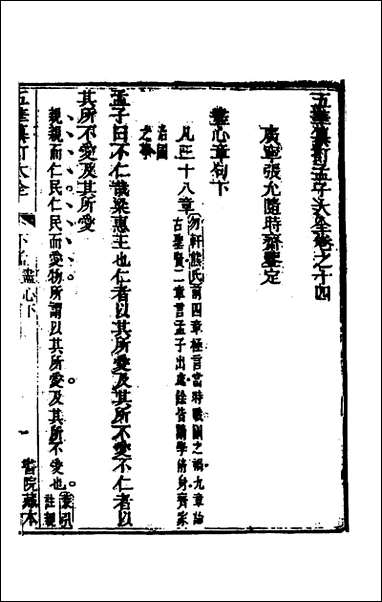 五華纂訂孟子大全卷之十四
廣寧張允隨時齋鑒定
盡心章句下
凡三十八章勿軒熊氏前四章極言當時戰國之禍九章論
古聖賢二章言孟子出處餘皆論學脩身齊家
治國
之學
孟子曰不仁哉梁惠王也仁者以其所愛及其所不愛不仁者以
其所不愛及其所愛
親親而仁民仁民而愛物所謂以其所愛及其所不愛也蒙引
註親
五華纂訂大全
下孟 盡心下
一
書院藏本